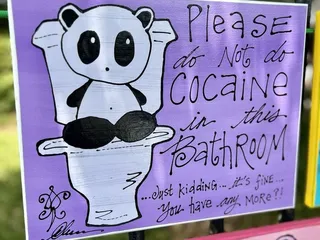 Please
do Not do
Cocaine
in this
BathRoom
...Just kidding... it's fine...
You have any More?!